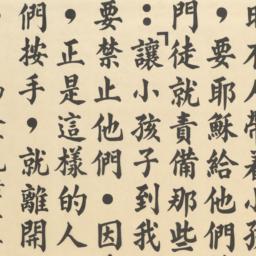 ，要耶穌給他們
門徒就責備那些
：「讓小孩子到我
要禁止他們．因
，正是這樣的人
們按手，就離開